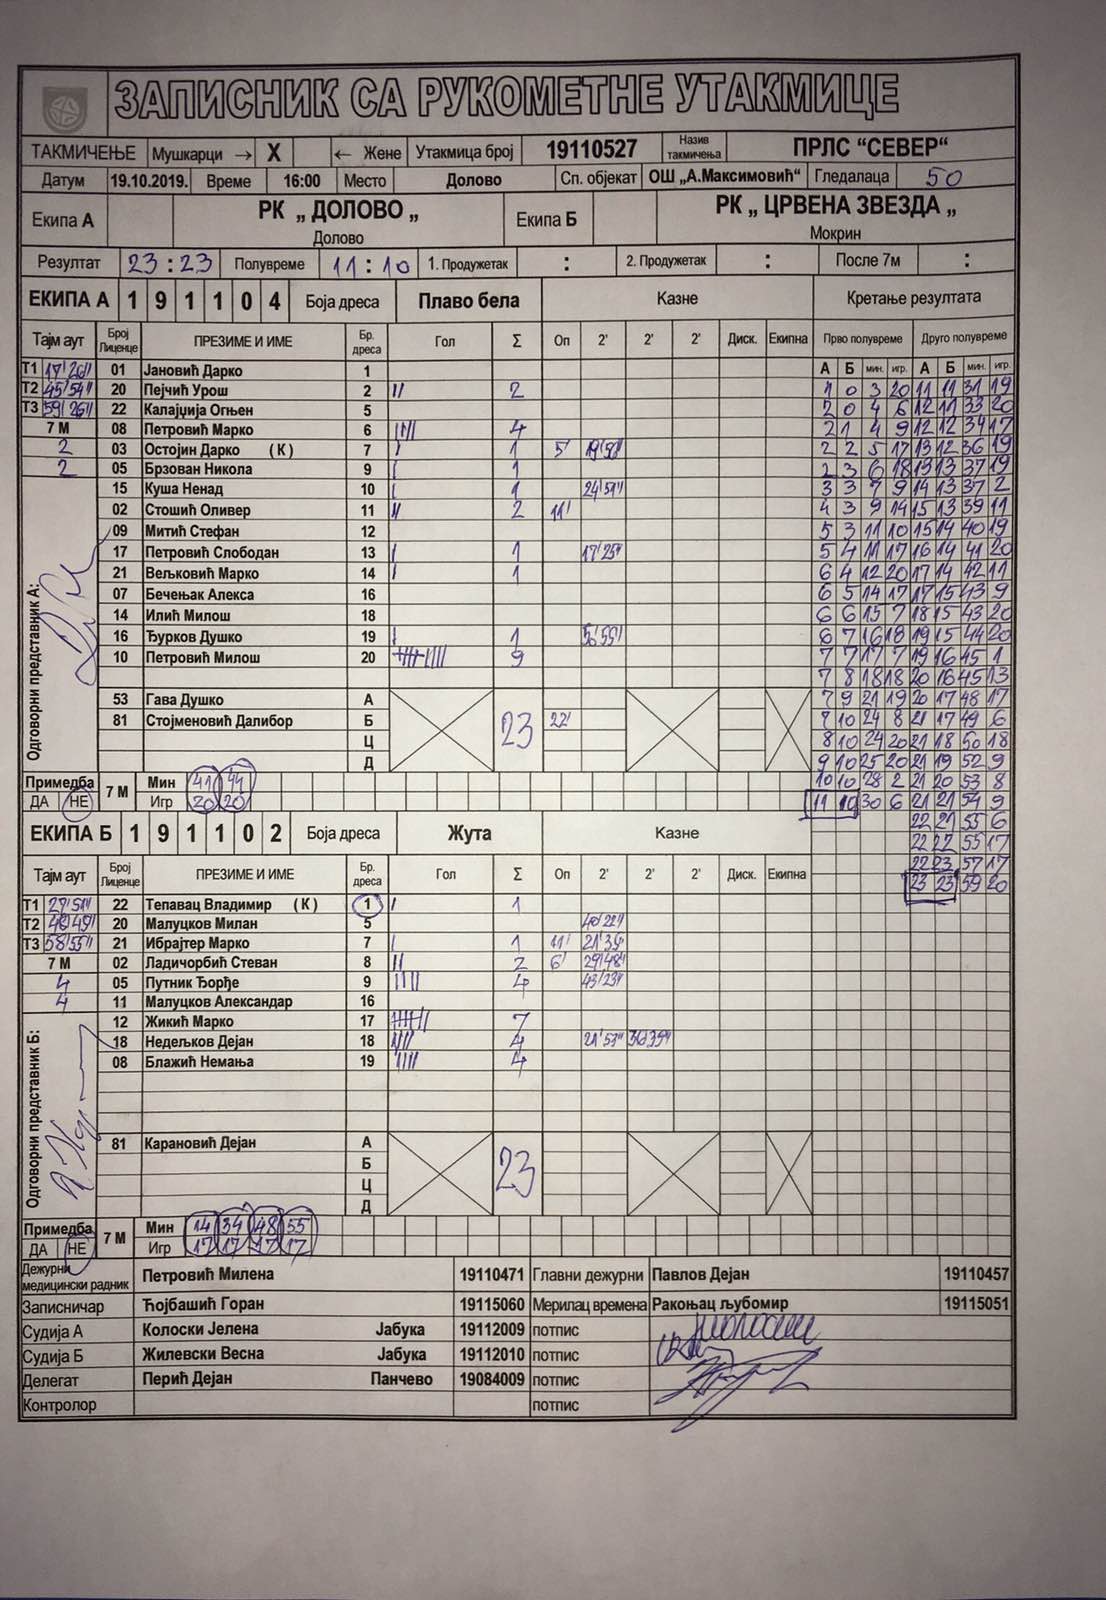 ЗАПИСНИК СА РУКОМЕТНЕ УТАКМИЦЕ
ТАКМИЧЕЊЕ Мушкарци → X ← Жене Утакмица број 19110527 Назив такмичења ПРЛС “СЕВЕР“
Датум 19.10.2019. Време 16:00 Место Долово Сп. објекат ОШ „А.Максимовић“ Гледалаца 50
Екипа А РК „ ДОЛОВО „ Долово Екипа Б РК „ ЦРВЕНА ЗВЕЗДА „ Мокрин
Резултат 23 : 23 Полувреме 11 : 10 1. Продужетак : 2. Продужетак : После 7м :
ЕКИПА А 1 9 1 1 0 4 Боја дреса Плаво бела Казне Кретање резултата
Тајм аут Број Лиценце ПРЕЗИМЕ И ИМЕ Бр. дреса Гол Σ Оп 2' 2' 2' Диск. Екипна Прво полувреме Друго полувреме
А Б мин. игр. А Б мин. игр.
Т1 17'26'' 01 Јановић Дарко 1
Т2 45'54'' 20 Пејчић Урош 2 II 2 1 0 3 20 11 11 31 19
Т3 59'26'' 22 Калајџија Огњен 5 2 0 4 6 12 11 33 20
7 М 08 Петровић Марко 6 IIII 4 2 1 4 9 12 12 34 17
2 03 Остојин Дарко ( К ) 7 I 1 5' 2 2 5 17 13 12 36 19
2 05 Брзован Никола 9 I 1 2 3 6 18 13 13 37 19
15 Куша Ненад 10 I 1 24'51'' 3 3 7 9 14 13 37 2
02 Стошић Оливер 11 II 2 11' 4 3 9 14 15 13 39 11
09 Митић Стефан 12 5 3 11 10 15 14 40 19
17 Петровић Слободан 13 I 1 17'25'' 5 4 11 17 16 14 41 20
21 Вељковић Марко 14 I 1 6 4 12 20 17 14 42 11
07 Бечењак Алекса 16 6 5 14 17 17 15 43 9
14 Илић Милош 18 6 6 15 7 18 15 43 20
16 Ђурков Душко 19 I 1 6 7 16 18 19 15 44 20
10 Петровић Милош 20 IIIIIIIII 9 7 7 17 7 19 16 45 1
7 8 18 18 20 16 45 13
53 Гава Душко А 7 9 21 19 20 17 48 17
81 Стојменовић Далибор Б 23 22' 7 10 24 8 21 17 49 6
Ц 8 10 24 20 21 18 50 18
Д 9 10 25 20 21 19 52 9
Примедба 7 М Мин 41 44 10 10 28 2 21 20 53 8
ДА НЕ Игр 20 20 11 10 30 6 21 21 54 9
ЕКИПА Б 1 9 1 1 0 2 Боја дреса Жута Казне 22 21 55 6
22 22 55 17
22 23 57 17
23 23 59 20
Тајм аут Број Лиценце ПРЕЗИМЕ И ИМЕ Бр. дреса Гол Σ Оп 2' 2' 2' Диск. Екипна
Т1 27'51'' 22 Тепавац Владимир ( К ) 1 I 1
Т2 48'49'' 20 Малуцков Милан 5 40'22''
Т3 58'55'' 21 Ибрајтер Марко 7 I 1 11' 21'35''
7 М 02 Ладичорбић Стеван 8 II 2 6' 29'48''
4 05 Путник Ђорђе 9 IIII 4 43'23''
4 11 Малуцков Александар 16
12 Жикић Марко 17 IIIIIII 7
18 Недељков Дејан 18 IIII 4 21'57'' 36'39''
08 Блажић Немања 19 IIII 4
81 Карановић Дејан А
Б 23
Ц
Д
Одговорни представник А:
Одговорни представник Б:
Примедба 7 М Мин 14 34 48 55
ДА НЕ Игр 17 17 17 17
Дежурни медицински радник Петровић Милена 19110471 Главни дежурни Павлов Дејан 19110457
Записничар Ћојбашић Горан 19115060 Мерилац времена Ракоњац љубомир 19115051
Судија А Колоски Јелена Јабука 19112009 потпис
Судија Б Жилевски Весна Јабука 19112010 потпис
Делегат Перић Дејан Панчево 19084009 потпис
Контролор потпис